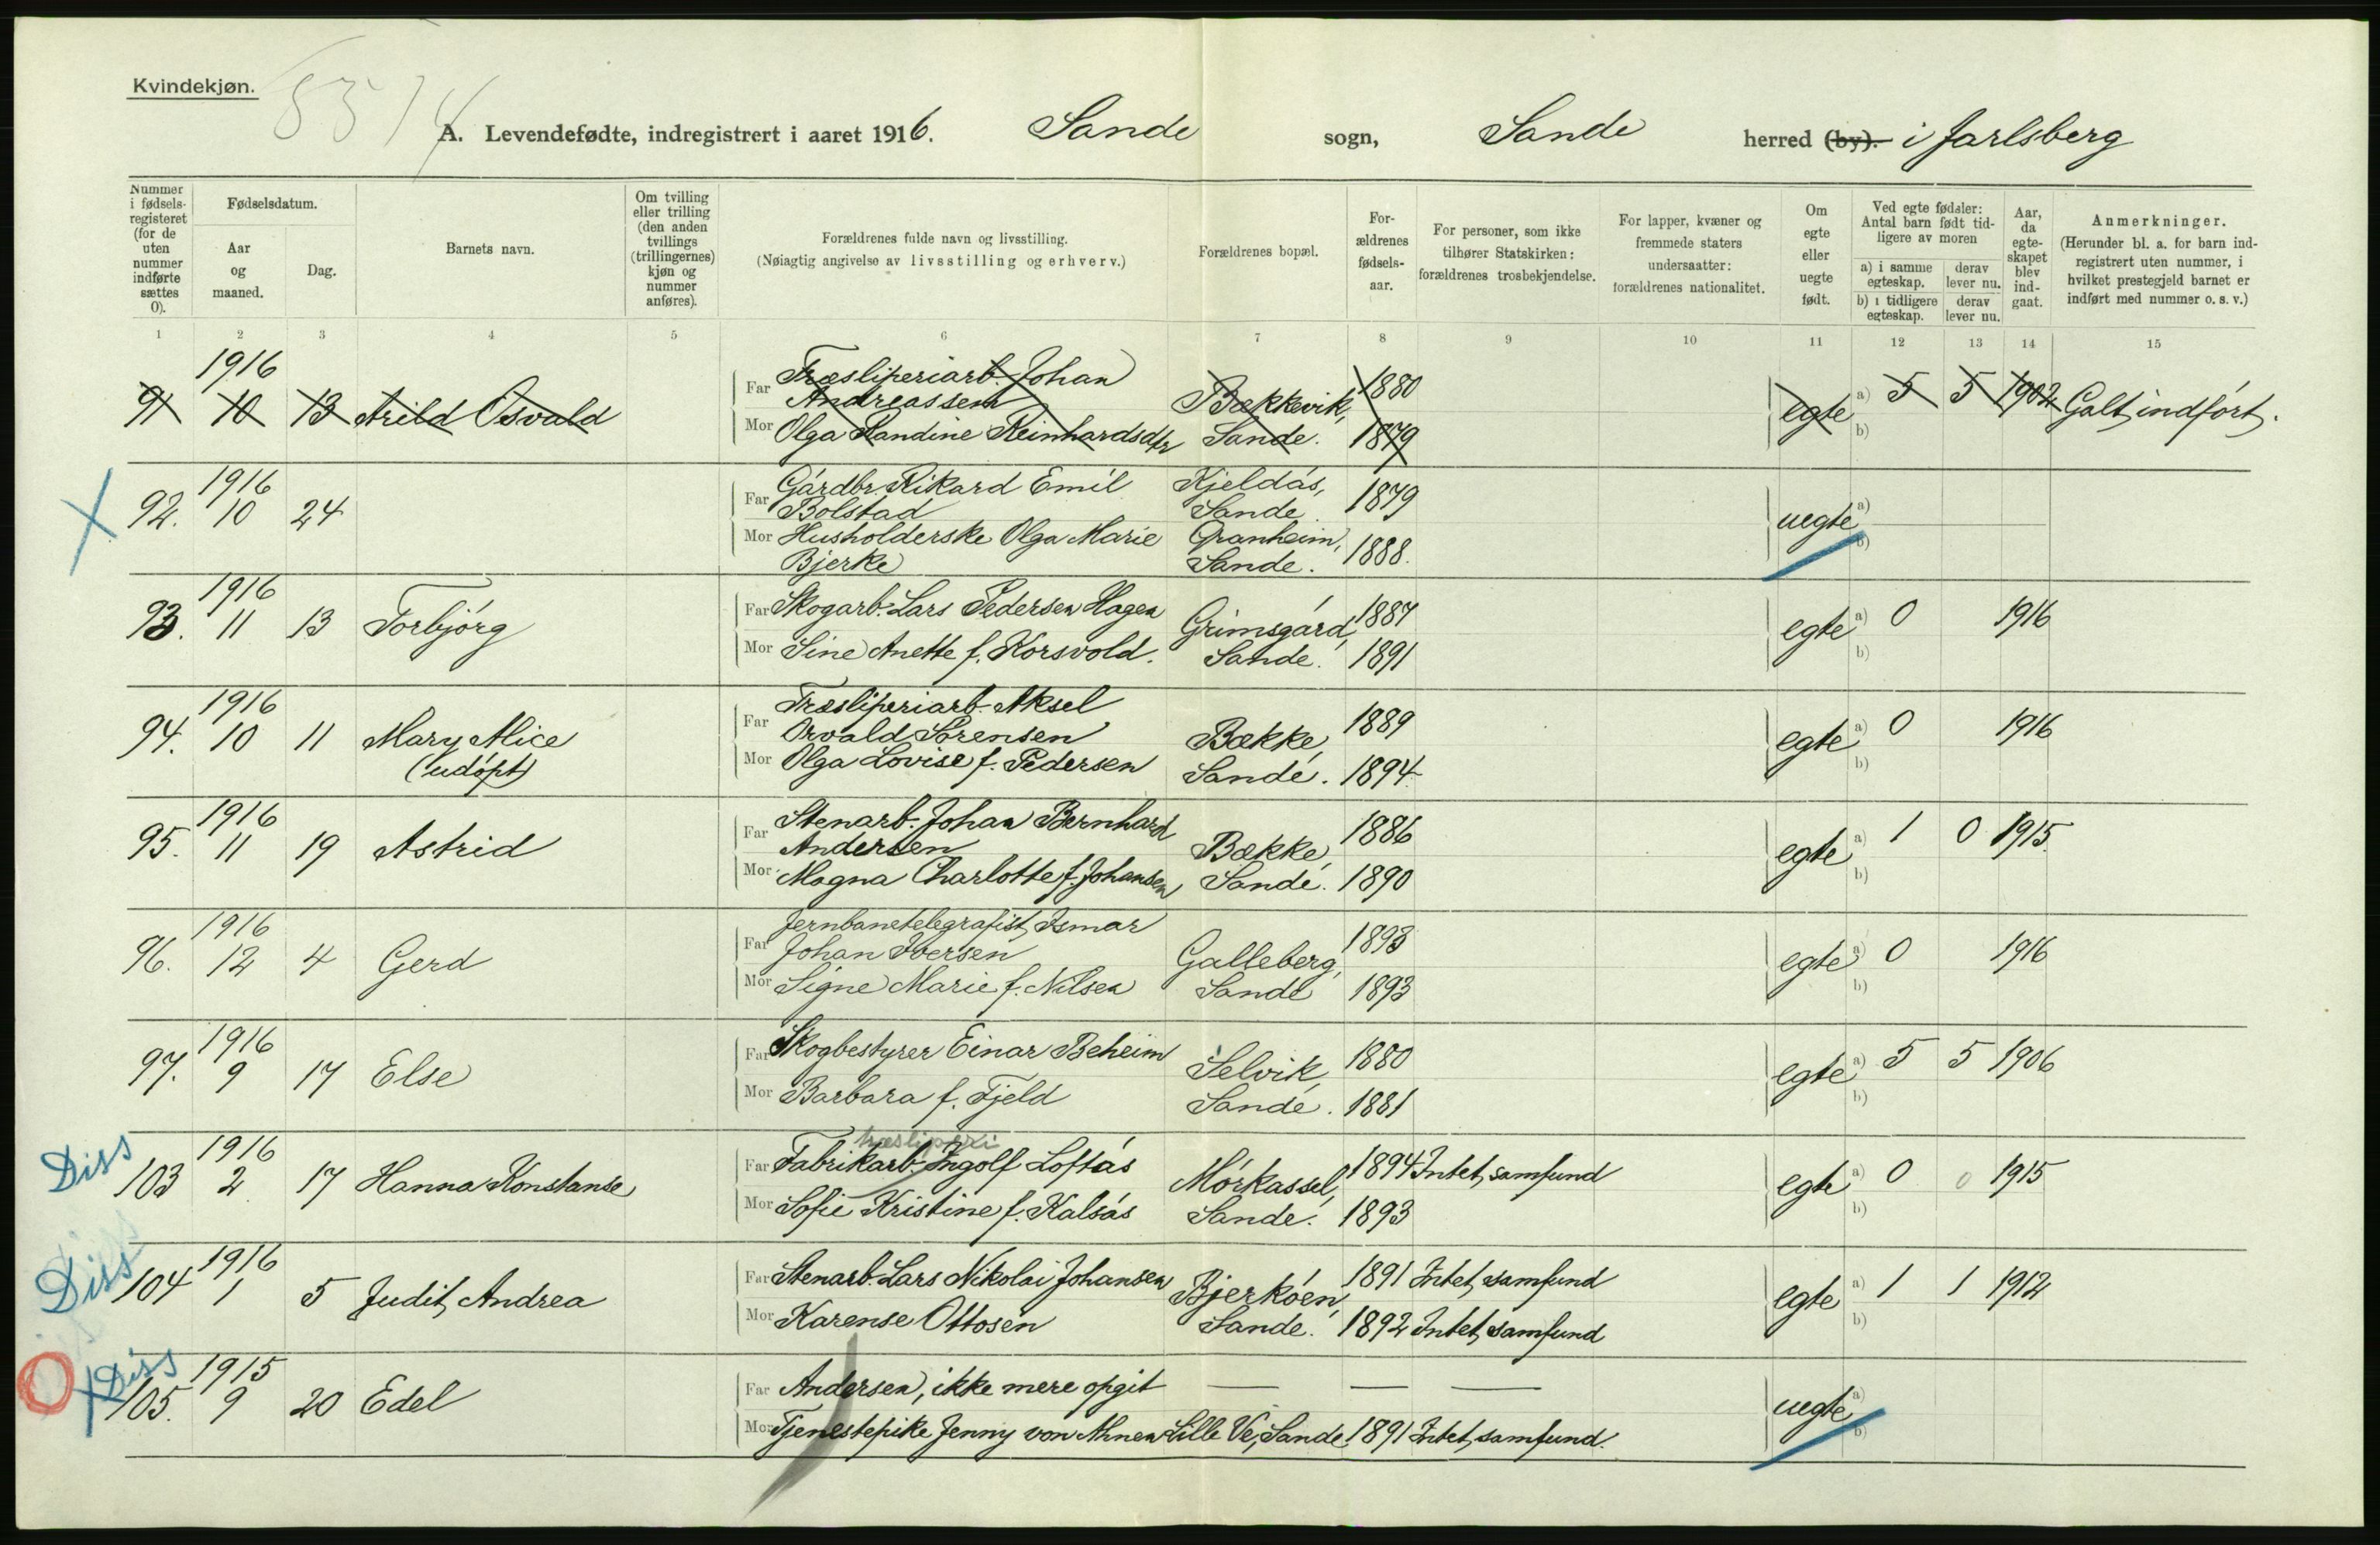 Kvindekjøn.
A. Levendefødte, indregistrert i aaret 1916. Sande sogn, Sande herred (by). i Jarlsberg
Nummer i fødsels-registeret (for de uten nummer indførte sættes 0).
Fødselsdatum.
Aar og maaned.
Dag.
Barnets navn.
Om tvilling eller trilling (den anden tvillings (trillingernes) kjøn og nummer anføres).
Forældrenes fulde navn og livsstilling.
(Nøiagtig angivelse av livsstilling og erhverv.)
Forældrenes bopæl.
For-ældrenes fødsels-aar.
For personer, som ikke tilhører Statskirken: forældrenes trosbekjendelse.
For lapper, kvæner og fremmede staters undersaatter: forældrenes nationalitet.
Om egte eller uegte født.
Ved egte fødsler: Antal barn født tid-ligere av moren
a) i samme egteskap. derav lever nu.
b) i tidligere egteskap. derav lever nu.
Aar, da egte-skapet blev ind-gaat.
Anmerkninger.
(Herunder bl. a. for barn ind-registrert uten nummer, i hvilket prestegjeld barnet er indført med nummer o. s. v.)
1 2 3 4 5 6 7 8 9 10 11 12 13 14 15
1916 Far Træsliperiarb. Johan 1880
91 10 13 Arild Osvald Andreassen Bækkevik, egte a) 5 5 1902 Galt indført.
Mor Olga Randine Reinhardsdtr Sande. 1879 b)
1916 Far Gårdbr. Rikard Emil Kjeldås, 1879
92. 10 24 Bolstad Sande. uegte a)
Mor Husholderske Olga Marie Granheim, 1888. b)
Bjerke Sande.
1916 Far Skogarb. Lars Pedersen Hagen 1887
93. 11 13 Torbjørg Grimsgård, egte a) 0 1916
Mor Sine Anette f. Korsvold. Sande. 1891 b)
1916 Far Træsliperiarb. Aksel 1889
94. 10 11 Mary Alice Orvald Sørensen Bække, egte a) 0 1916
(udøpt) Mor Olga Lovise f. Pedersen Sande. 1894 b)
1916 Far Stenarb. Johan Bernhard 1886
95. 11 19 Astrid Andersen Bække, egte a) 1 0 1915.
Mor Magna Charlotte f. Johansen Sande. 1890 b)
1916 Far Jernbanetelegrafist Ismar 1893
96. 12 4 Gerd Johan Iversen Galleberg, egte a) 0 1916
Mor Signe Marie f. Nilsen Sande 1893 b)
1916 Far Skogbestyrer Einar Beheim 1880
97. 9 17 Else Selvik, egte a) 5 5 1906
Mor Barbara f. Fjeld Sande. 1881 b)
træsliperi
Diss 1916 Far Fabrikarb. Ingolf Loftås 1894 Intet samfund
103 2 17 Hanna Konstanse Mørkassel, egte a) 0 0 1915
Mor Sofie Kristine f. Kalsås Sande. 1893 b)
Diss 1916 Far Stenarb. Lars Nikolai Johansen 1891 Intet samfund
104 1 5 Judit Andrea Bjerkøen, egte a) 1 1 1912
Mor Karense Ottosen Sande. 1892 Intet samfund b)
Diss 1915 Far Andersen, ikke mere opgit — — —
105. 9 20 Edel uegte a)
Mor Tjenestepike Jenny von Ahnen Lille Ve, Sande 1891 Intet samfund. b)